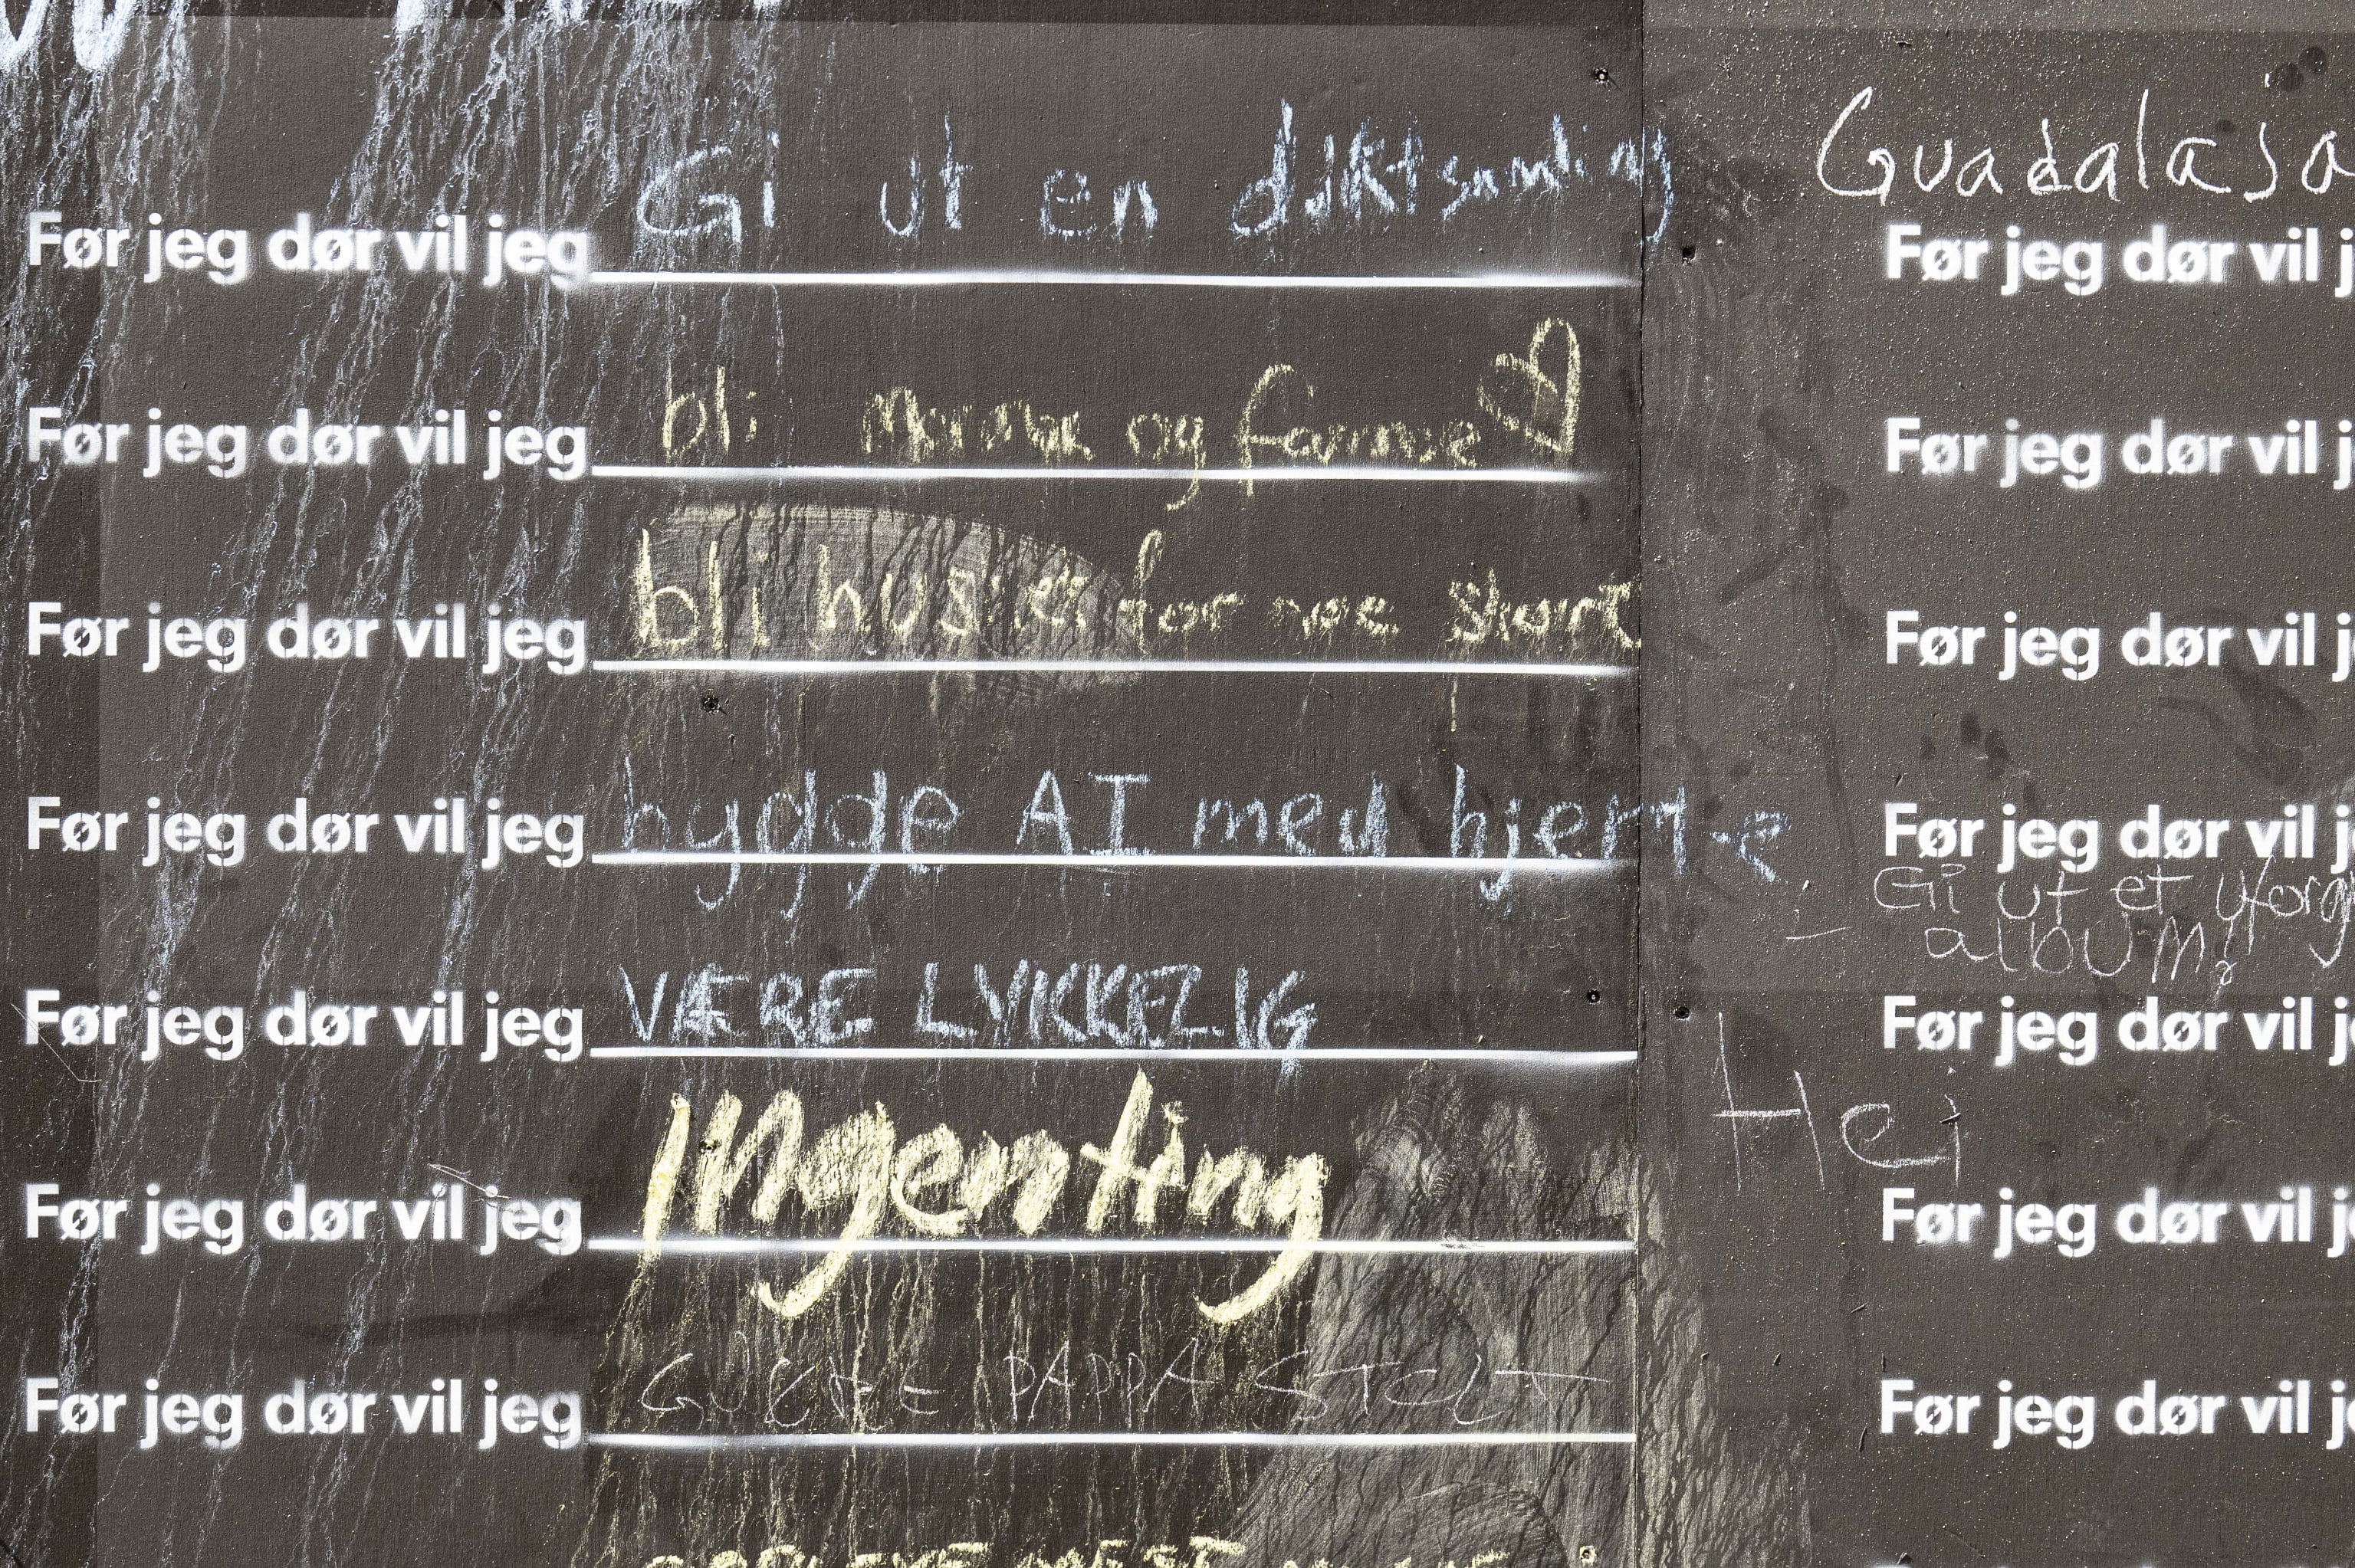 Før jeg dør vil jeg Gi ut en diktsamling
Før jeg dør vil jeg bli mamma og farmor
Før jeg dør vil jeg bli husket for noe stort
Før jeg dør vil jeg bygge AI med hjerte
Før jeg dør vil jeg VÆRE LYKKELIG
Før jeg dør vil jeg Ingenting
Før jeg dør vil jeg GJØRE PAPPA STOLT
Guadalaja
Før jeg dør vil j
Før jeg dør vil j
Før jeg dør vil j
Før jeg dør vil j
Gi ut et
album?
Før jeg dør vil je
Hei
Før jeg dør vil je
Før jeg dør vil je